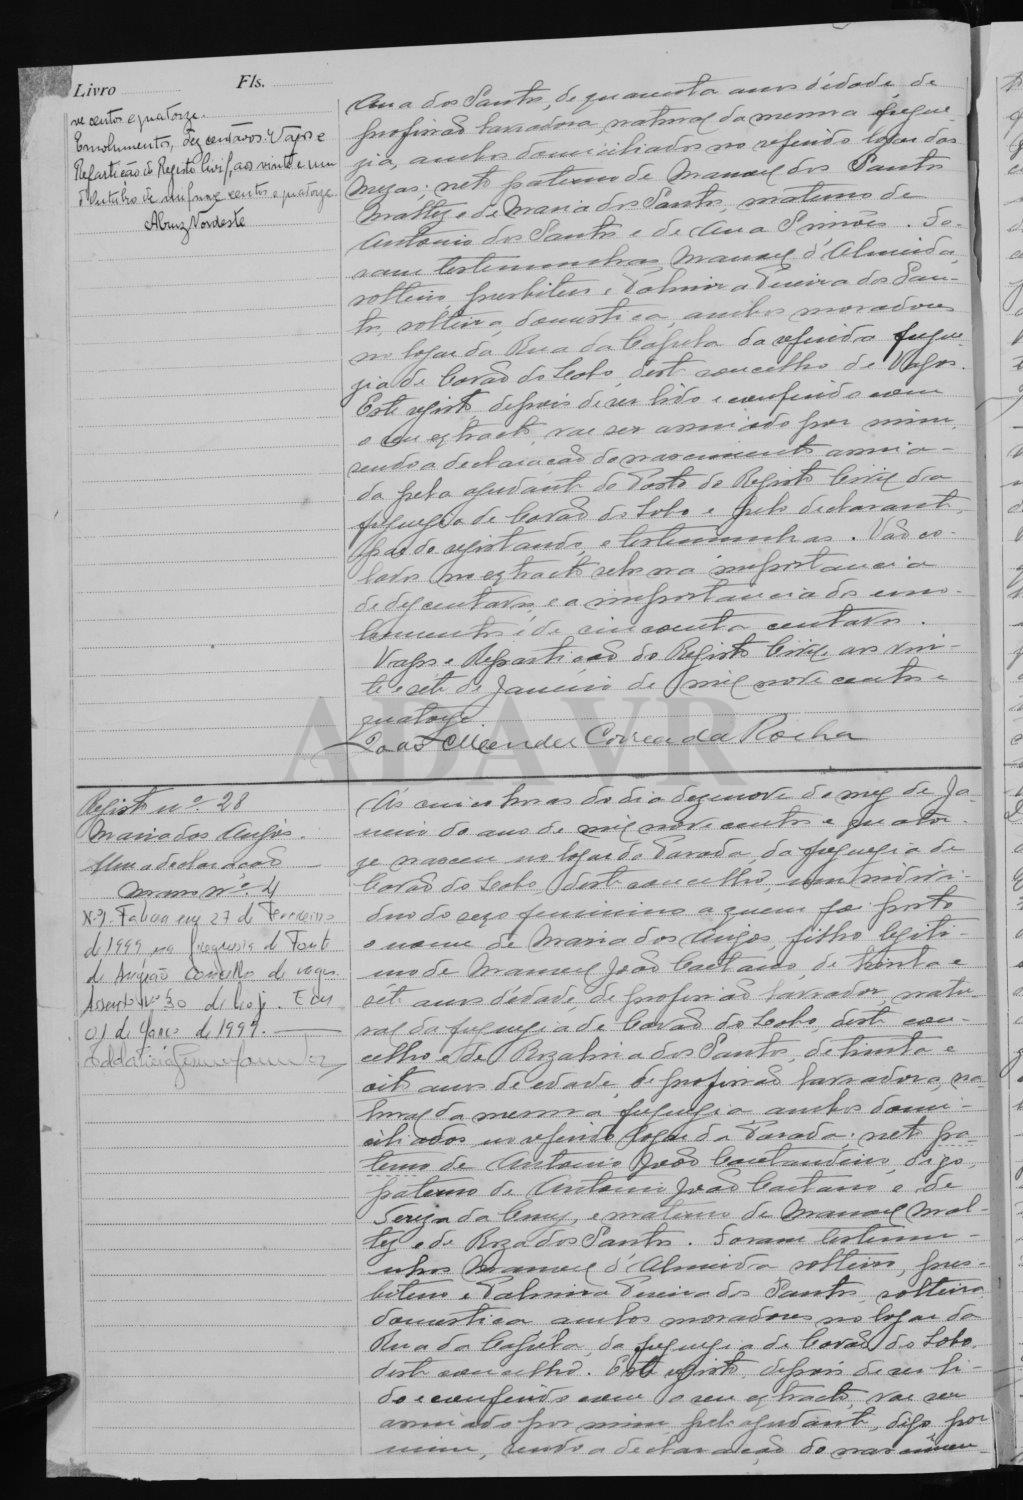 Livro Fls.
ve centos e quatorze.
Emolumentos, dez centavos. Vagos e
Repartição do Registo Civil, aos vinte e um
d'Outubro de mil nove centos e quatorze.
Abruz Nordeste
Ana dos Santos, de quarenta anos d'edade, de
profissão lavradora, natural da mesma fregue-
zia, ambos domiciliados no referido logar dos
Mezas; neto paterno de Manoel dos Santos
Maltez e de Maria dos Santos, materno de
Antonio dos Santos e de Ana Simões. Fo-
ram testemunhas Manoel d'Almeida,
solteiro, presbitero e Palmira Pereira dos San-
tos, solteira, domestica, ambos moradores
no logar da Rua da Capela da referida fregue-
zia de Covão do Lobo, deste concelho de Vagos.
Este registo, depois de ser lido e conferido com
o seu extracto, vae ser assinado por mim,
sendo a declaração do nascimento assina-
da pela ajudante do Posto do Registo Civil da
freguezia de Covão do Lobo e pelo declarante,
pae do registando, e testemunhas. Vão co-
lados no extracto selos na importancia
de dez centavos, e a importancia dos emo-
lumentos é de cincoenta centavos.
Vagos e Repartição do Registo Civil aos vin-
te e sete de Janeiro de mil nove centos e
quatorze
João Mendes Correa da Rocha
ADAVR
Registo nº 28
Maria dos Anjos.
Uma declaração
Maço nº 4
Nº1. Faleceu em 27 de Fevereiro
de 1999, na freguesia de Fonte
de Angeão Concelho de Vagos.
Assento nº 30 de hoje. Em
01 de Março de 1999.
Ás cinco horas do dia dezenove do mez de Ja-
neiro do ano de mil nove centos e quator-
ze nasceu no logar da Parada, da freguezia de
Covão do Lobo, deste concelho, um indivi-
duo do sexo feminino a quem foi posto
o nome de Maria dos Anjos, filho legiti-
mo de Manuel João Caetano, de trinta e
sete anos d'edade, de profissão lavrador, natu-
ral da freguezia de Covão do Lobo, deste con-
celho e de Rozalina dos Santos, de trinta e
oito anos de edade, de profissão lavradora, na-
tural da mesma freguezia ambos domi-
ciliados no referido logar da Parada; neto pa-
terno de Antonio João Caetandino, digo,
paterno de Antonio João Caetano e de
Tereza da Cruz, e materno de Manoel Mal-
tez e de Roza dos Santos. Foram testemu-
nhas Manoel d'Almeida solteiro, pres-
bitero e Palmira Pereira dos Santos, solteira,
domestica ambos moradores no logar da
Rua da Capela, da freguezia de Covão do Lobo,
deste concelho. Este registo, depois de ser li-
do e conferido com o seu extracto, vae ser
assinado por mim, pela ajudante, digo por
mim, sendo a declaração do nascimen-